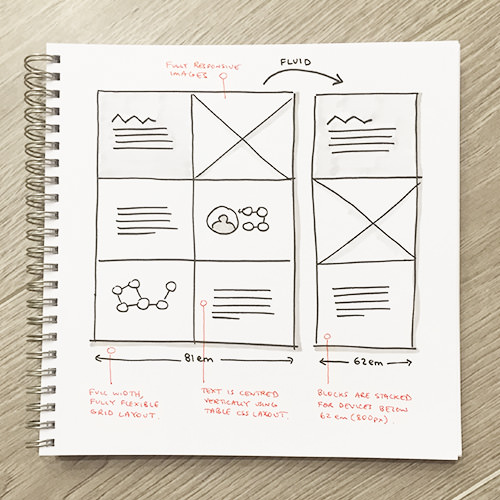 FULLY RESPONSIVE
IMAGES
FLUID
81em
62em
FULL WIDTH,
FULLY FLEXIBLE
GRID LAYOUT.
TEXT IS CENTRED
VERTICALLY USING
TABLE CSS LAYOUT
BLOCKS ARE STACKED
FOR DEVICES BELOW
62em (800px).